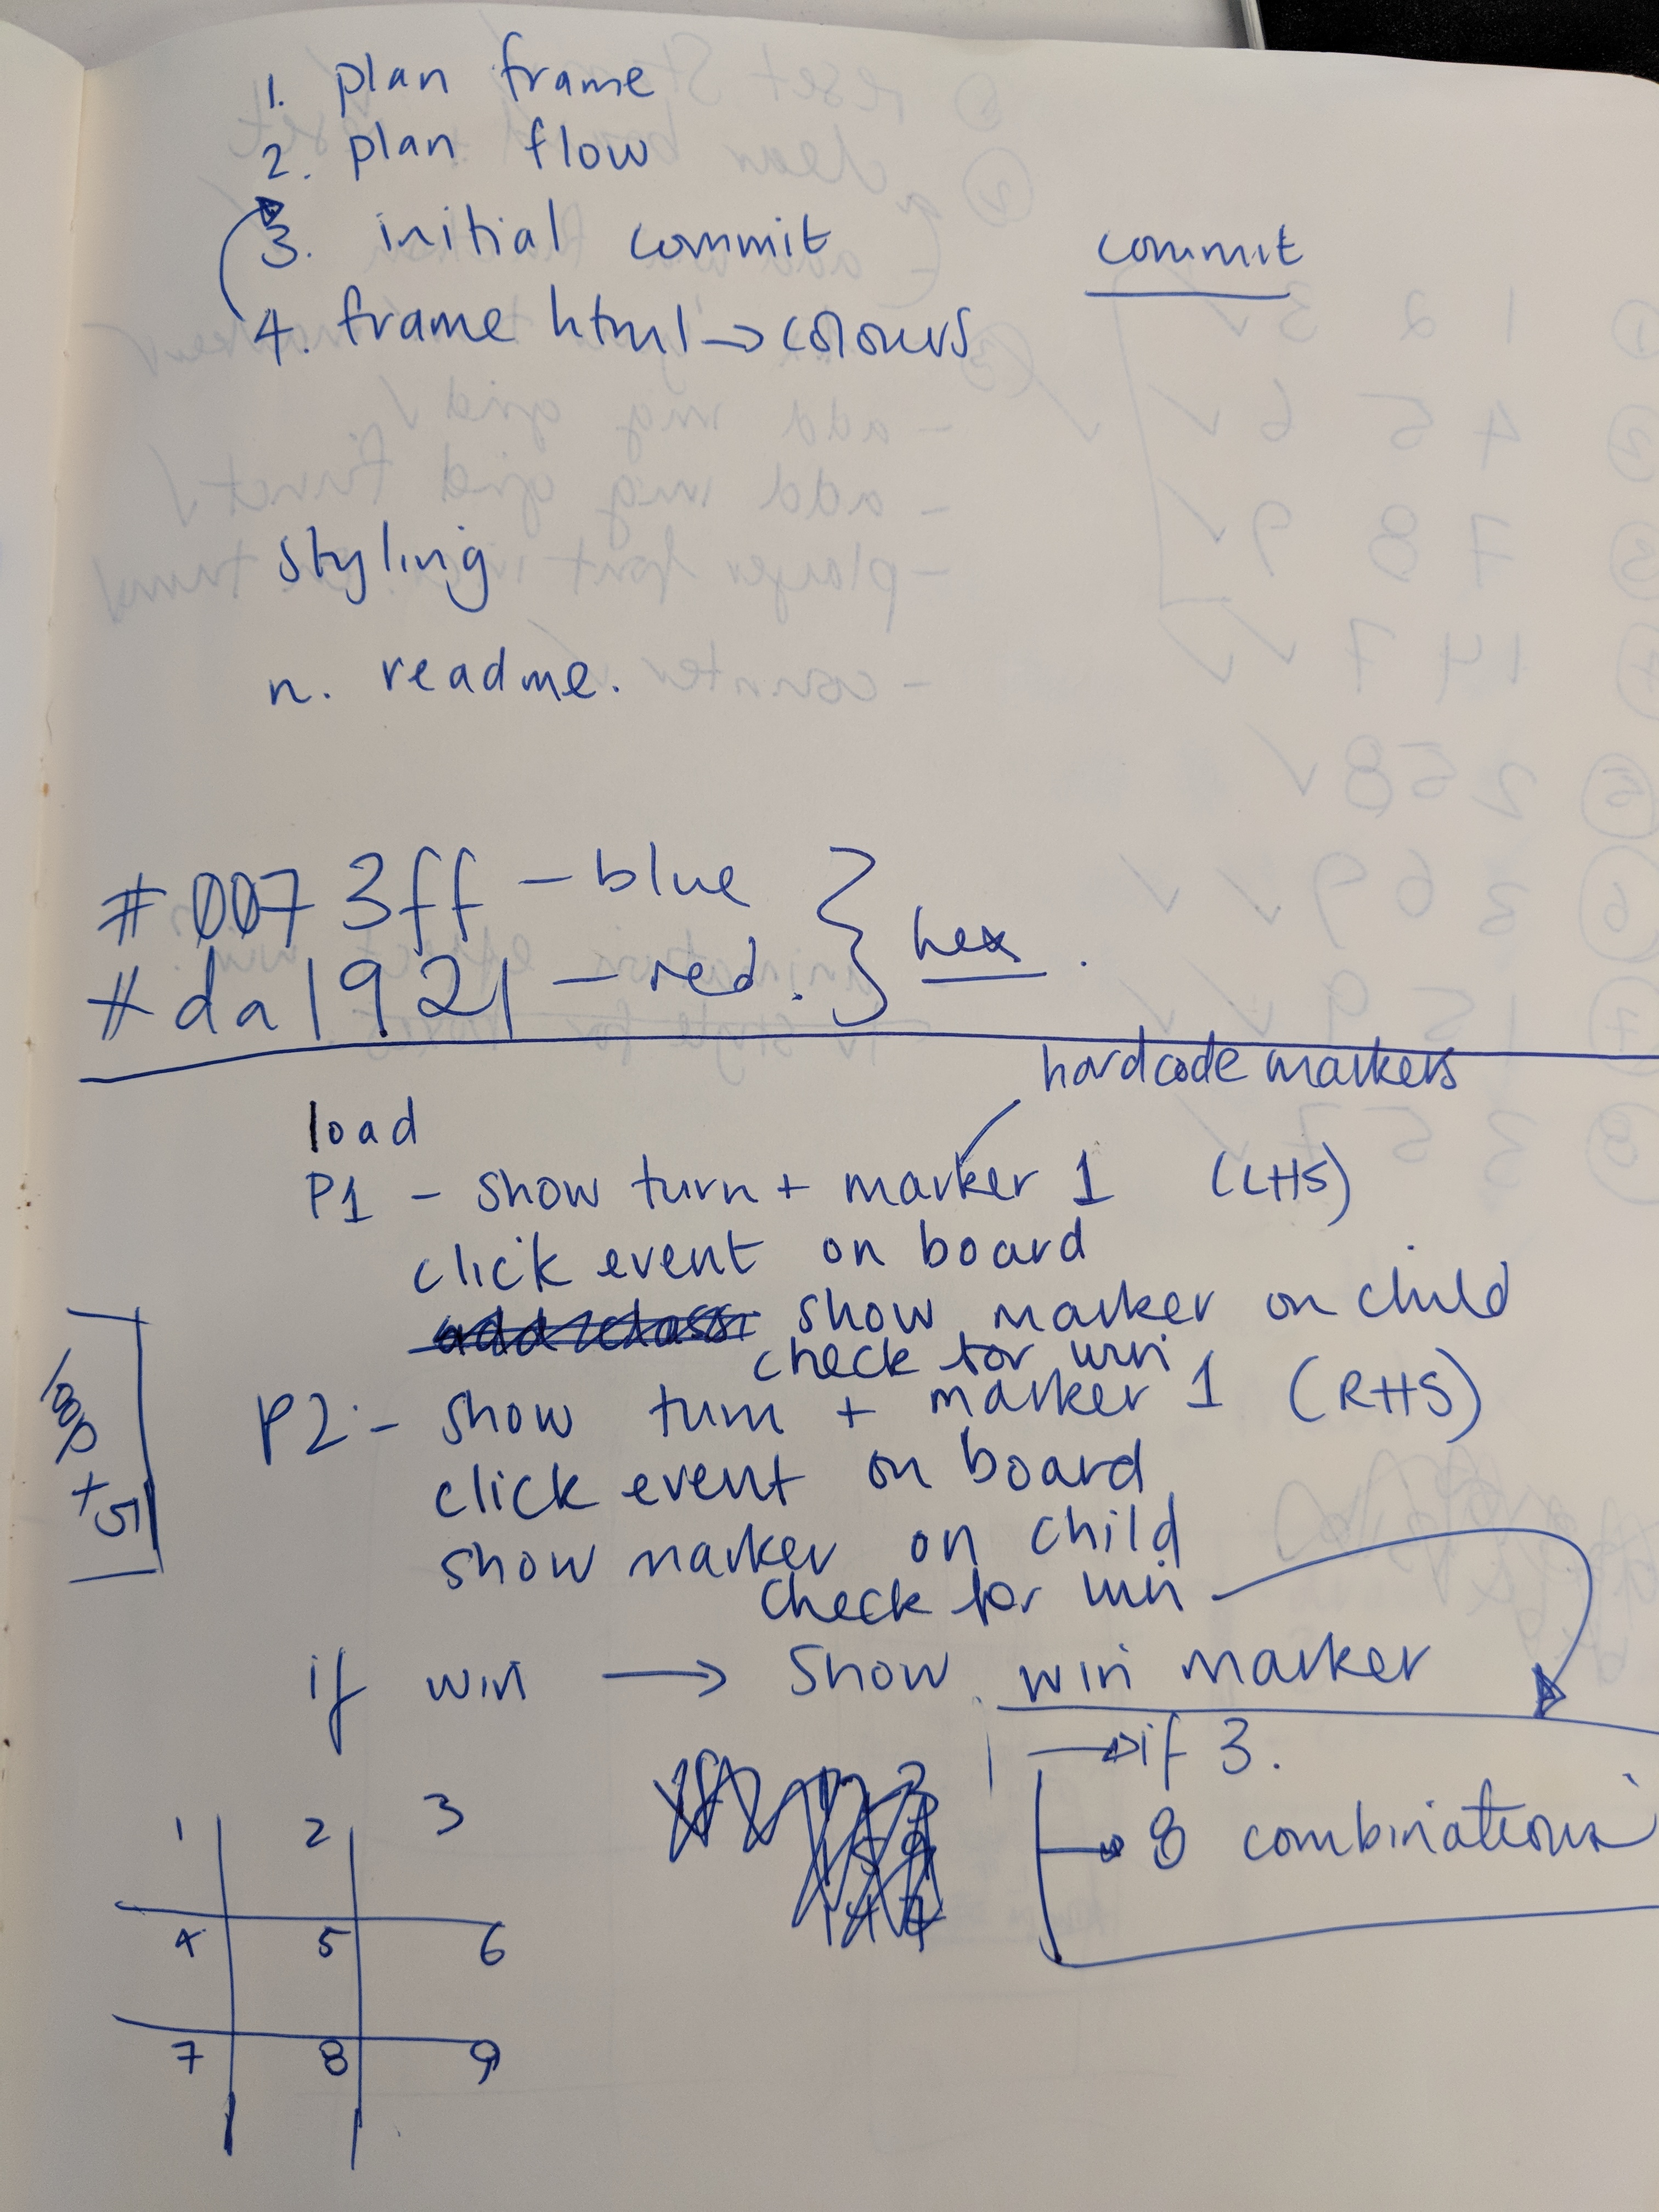 1. plan frame
2. plan flow
3. initial commit
commit
4. frame html → colours
styling
n. readme.
#0073ff - blue
#da1921 - red.
hex.
hardcode markers
load
P1 - show turn + marker 1 (LHS)
click event on board
show marker on child
check for win
P2 - show turn + marker 1 (RHS)
click event on board
show marker on child
check for win
loop + 5
if win → show win marker
→ if 3.
→ 8 combinations
1 2 3
4 5 6
7 8 9